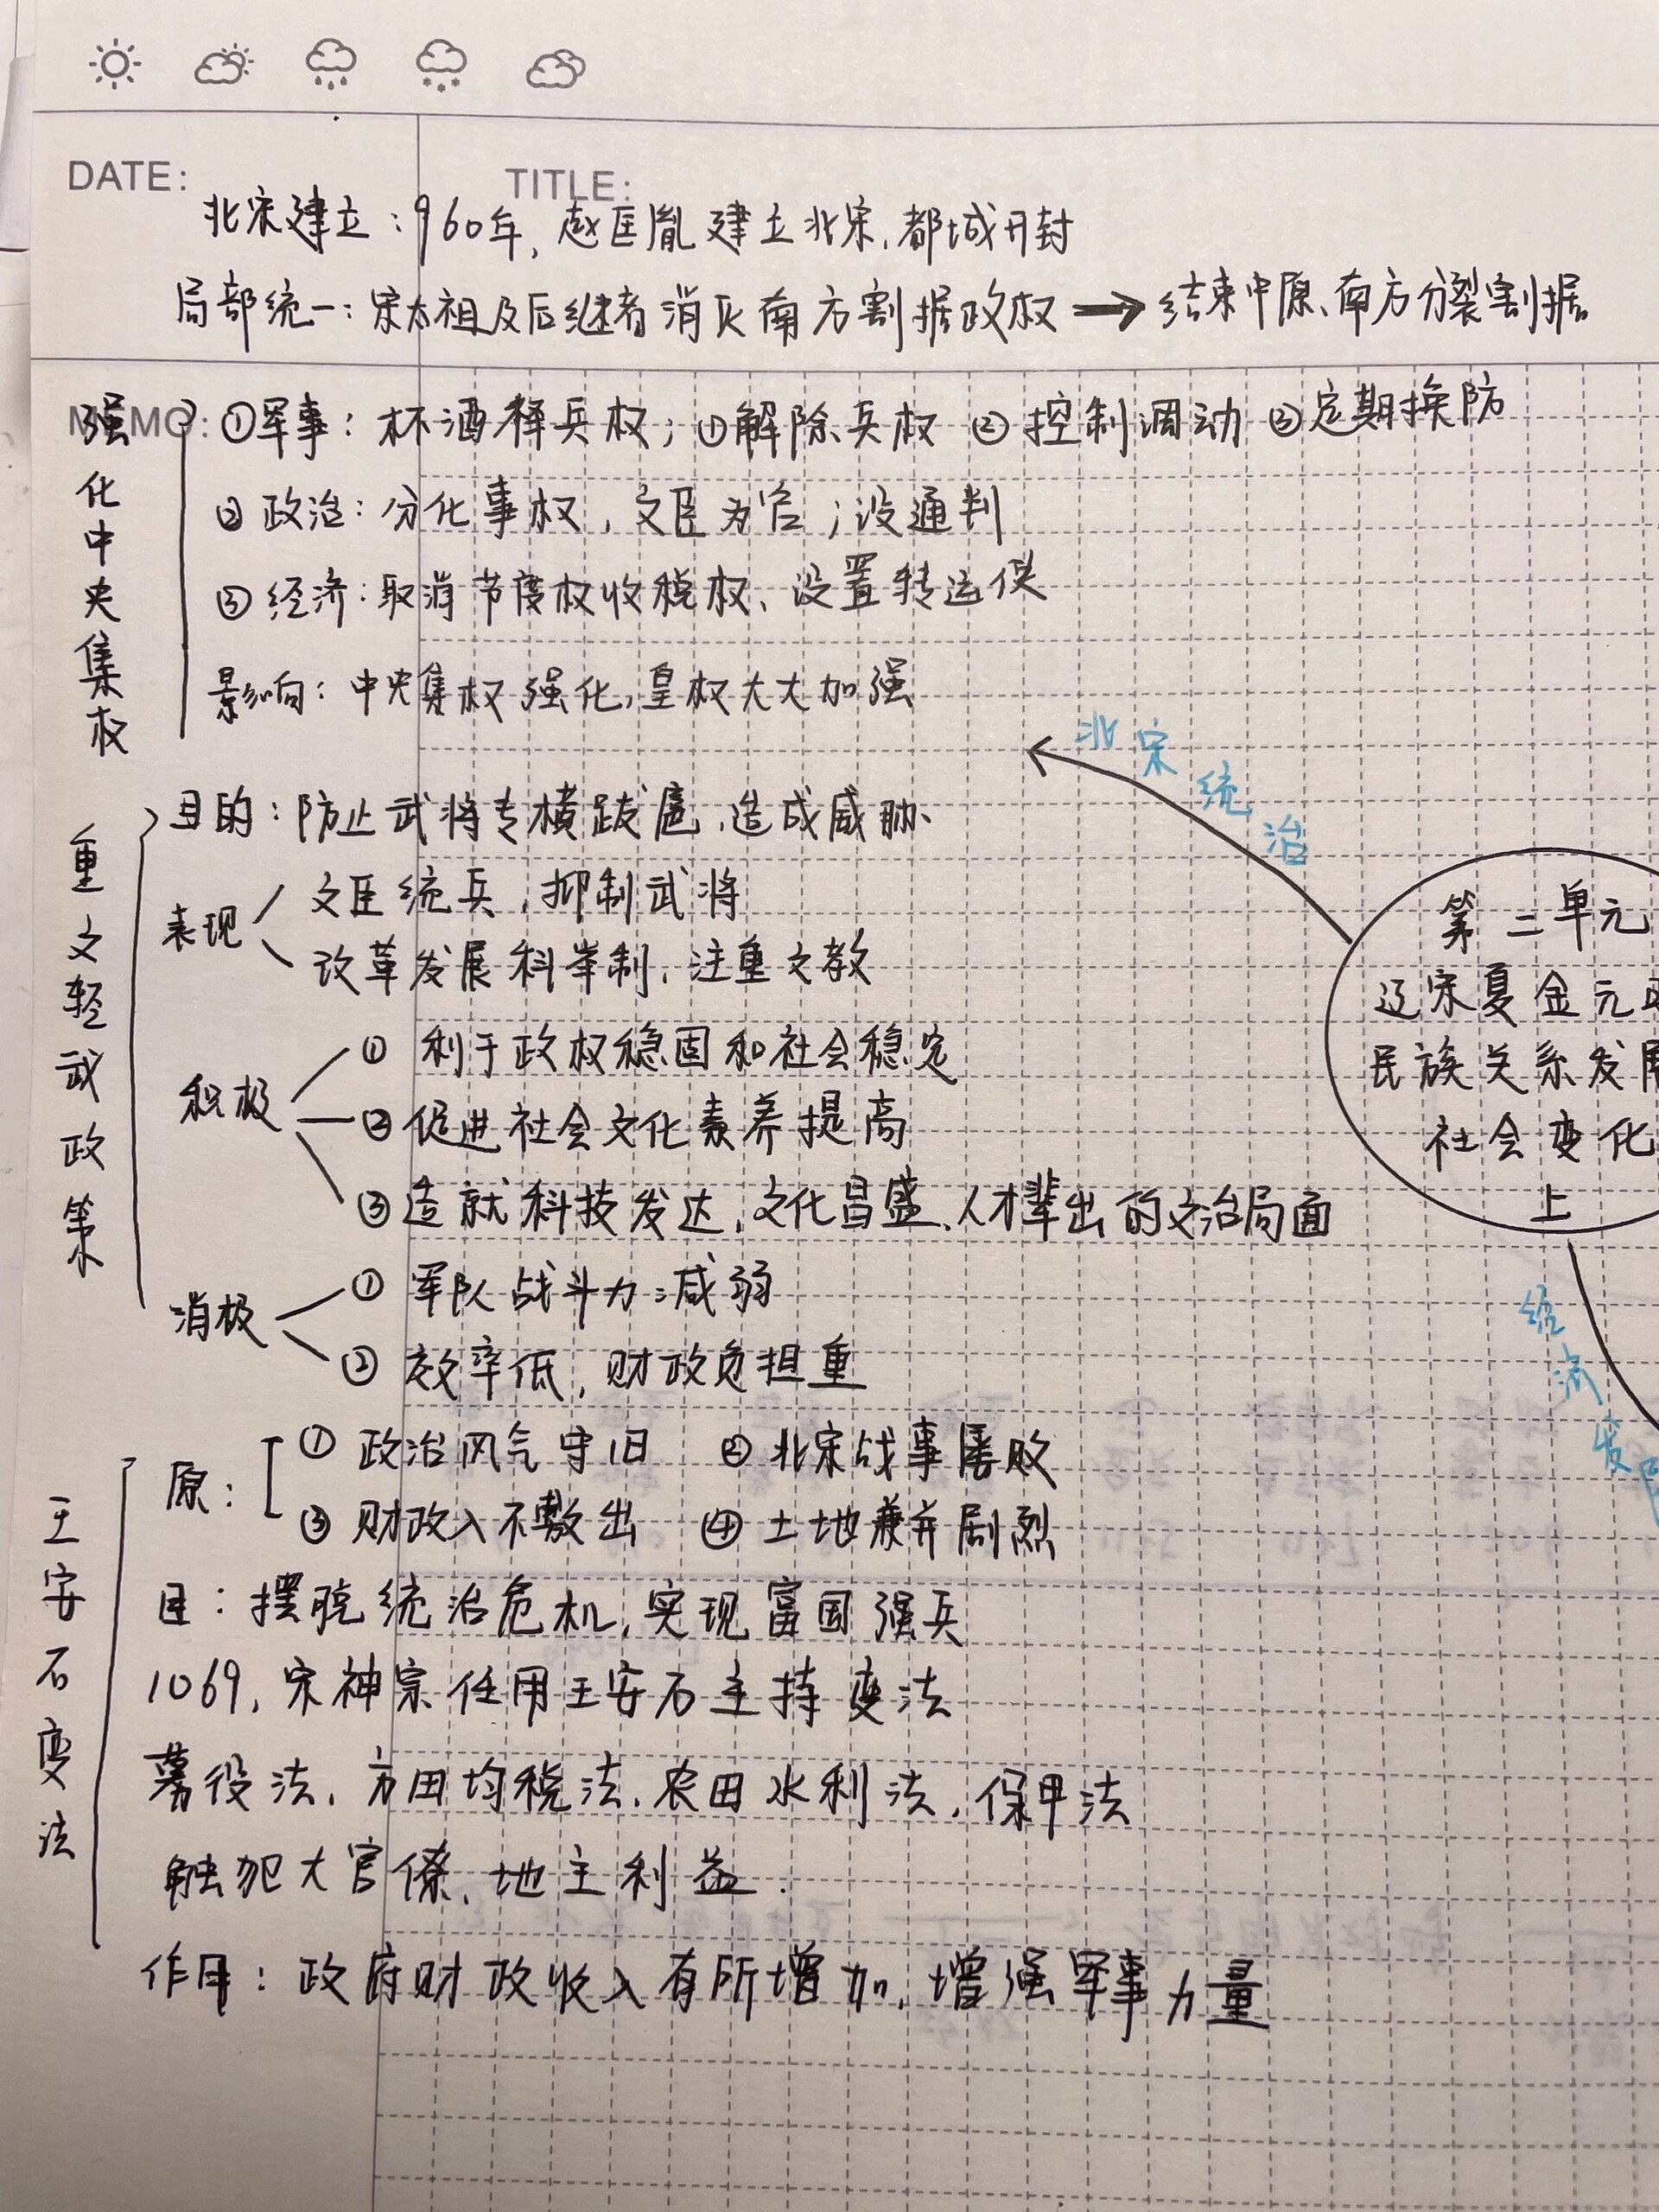 DATE:
TITLE:
北宋建立：960年，赵匡胤建立北宋，都城开封
局部统一：宋太祖及后继者消灭南方割据政权→结束中原、南方分裂割据
MEMO:
强化中央集权
①军事：杯酒释兵权；①解除兵权 ②控制调动 ③定期换防
②政治：分化事权，文臣为官；设通判
③经济：取消节度权收税权、设置转运使
影响：中央集权强化，皇权大大加强
北宋统治
重文轻武政策
目的：防止武将专横跋扈，造成威胁
表现
文臣统兵，抑制武将
改革发展科举制，注重文教
第二单元
辽宋夏金元
民族关系发展
社会变化
上
积极
① 利于政权稳固和社会稳定
②促进社会文化素养提高
③造就科技发达，文化昌盛、人才辈出的文治局面
消极
① 军队战斗力减弱
② 效率低，财政负担重
经济发
王安石变法
原：
① 政治风气守旧 ②北宋战事屡败
③ 财政入不敷出 ④土地兼并剧烈
目：摆脱统治危机，实现富国强兵
1069，宋神宗任用王安石主持变法
募役法，方田均税法，农田水利法，保甲法
触犯大官僚、地主利益.
作用：政府财政收入有所增加，增强军事力量